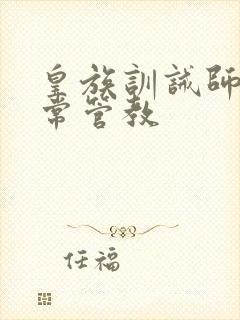 皇族訓誡師
常管教
任福